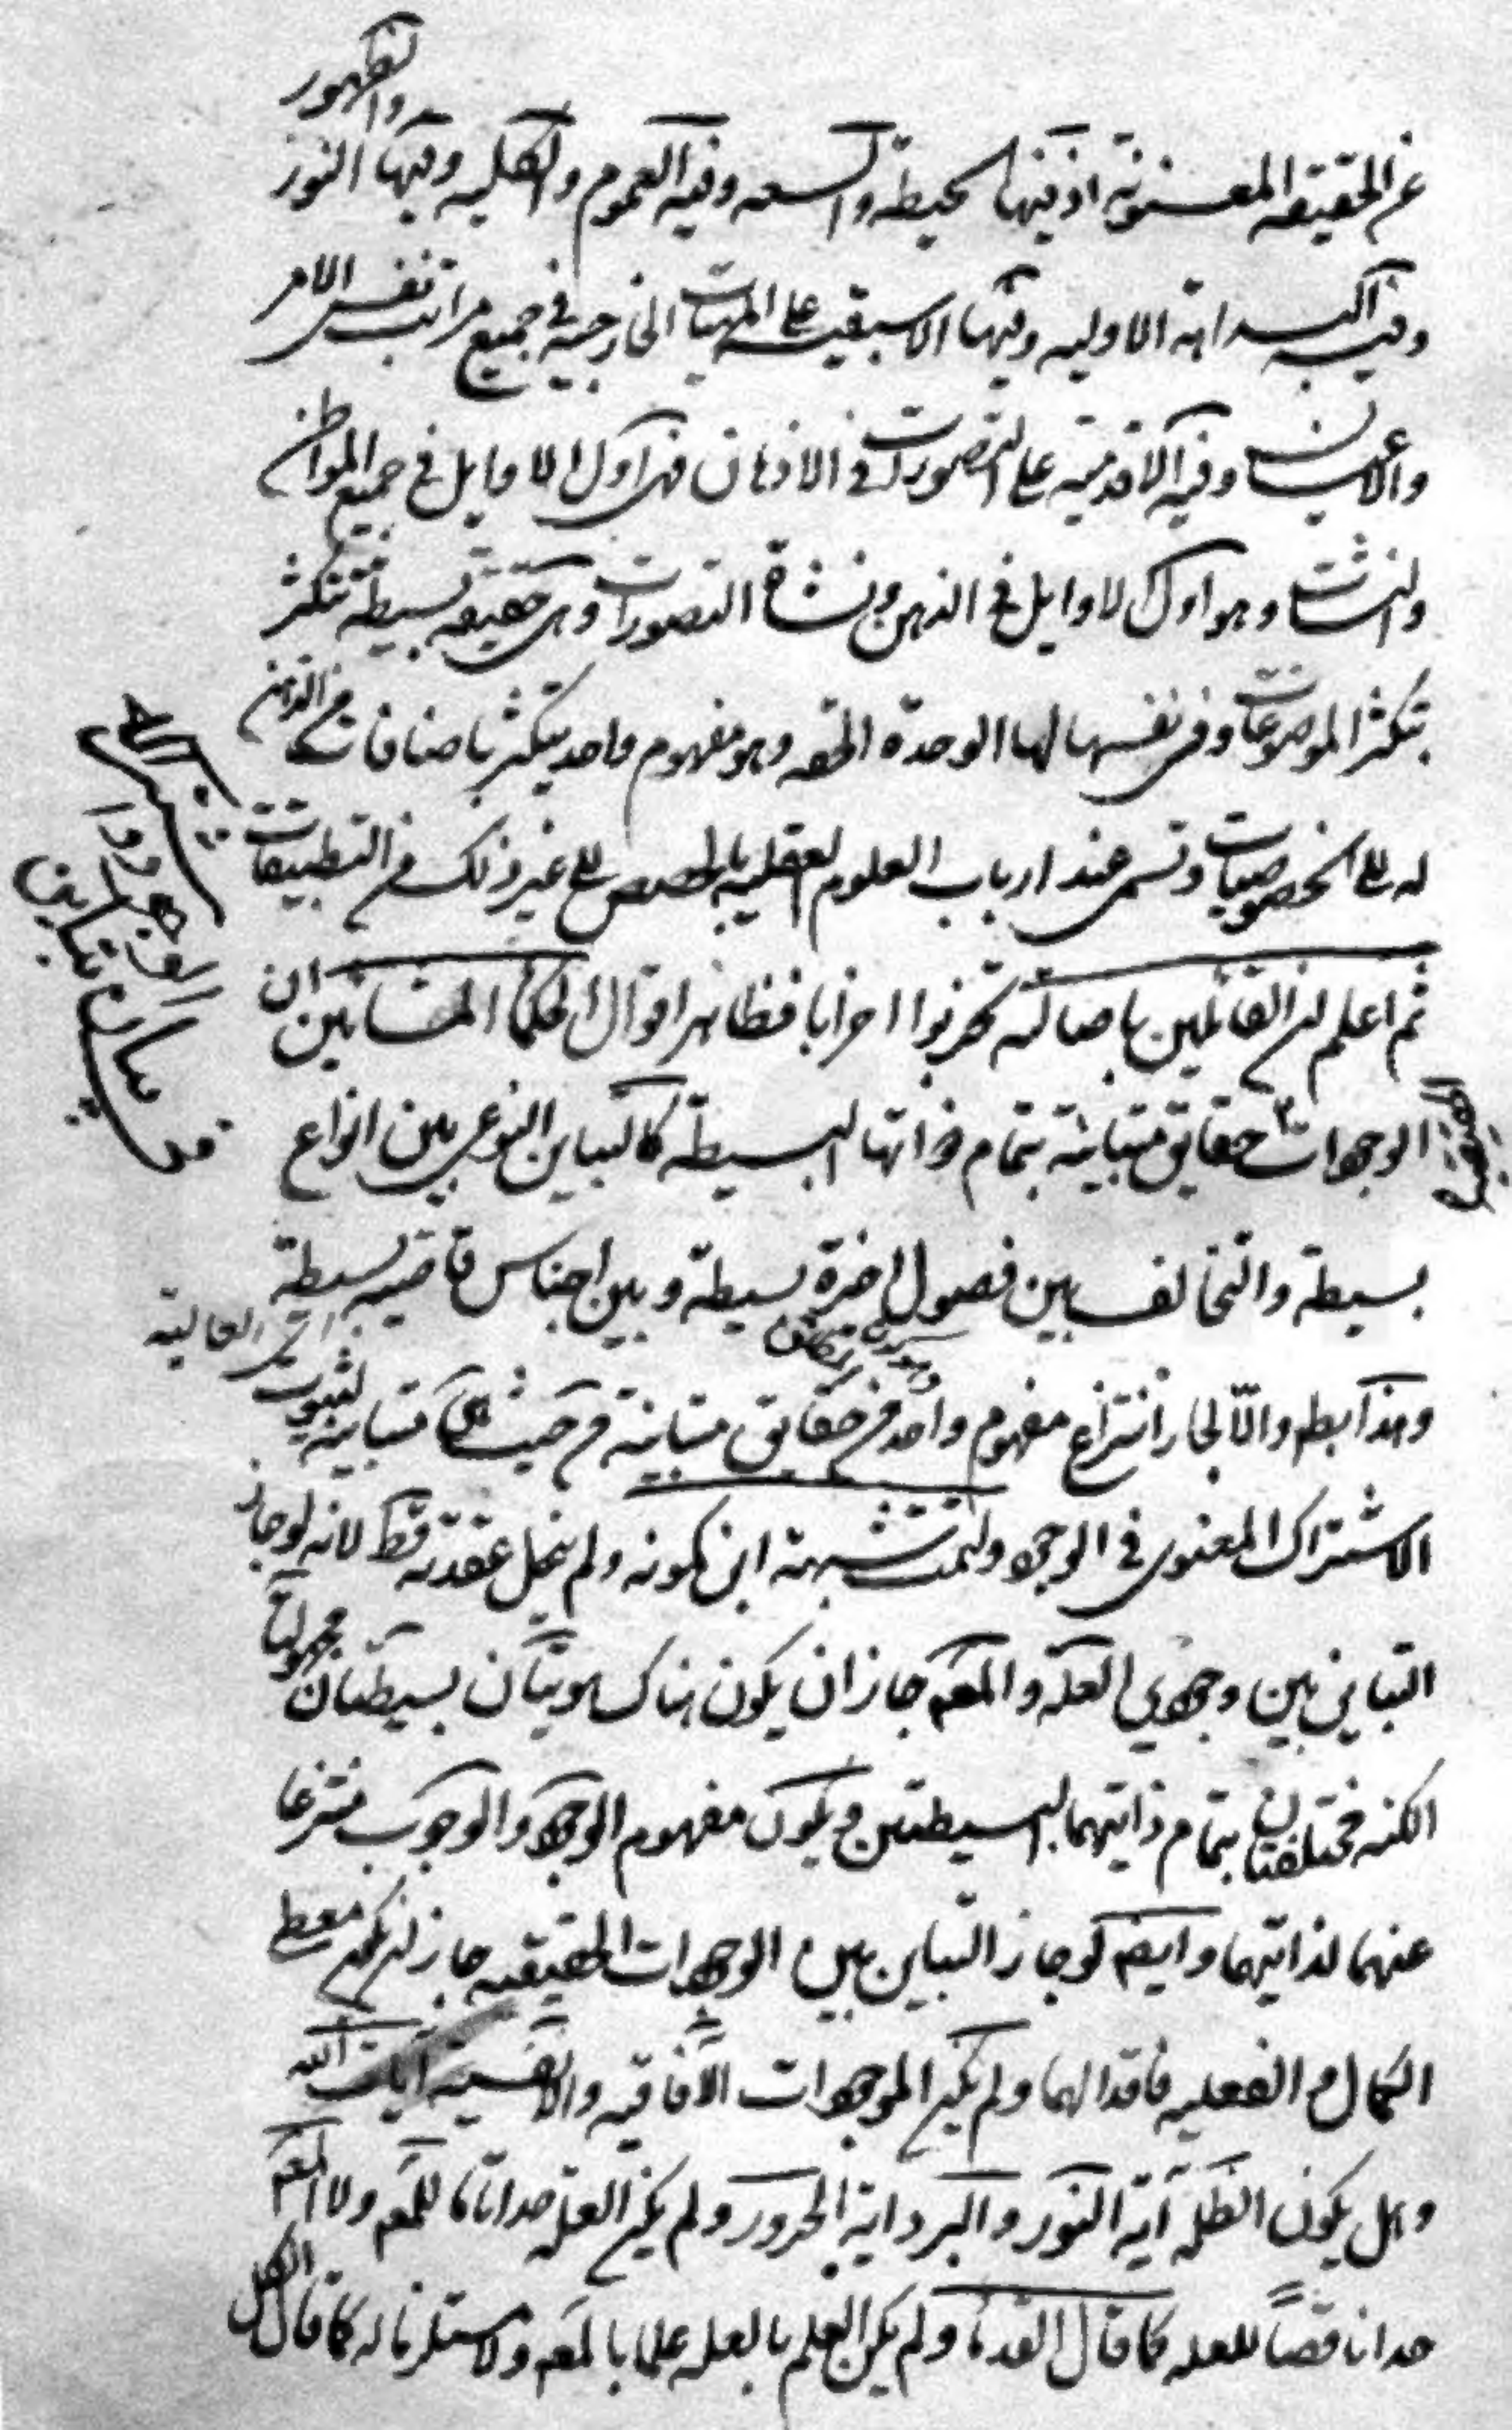 والظهور
عن الحقيقة المعنونة اذ فيها الحيطة والسعه وفيه العموم والكليه وفيها النور
وفيه البداهة الاوليه وفيها الاسبقية على المهيات الخارجية في جميع مراتب نفس الامر
والاعيان وفيه الاقدمية على التصورات في الاذهان فهى اول الاوايل في جميع المواطن
والنشئات وهو اول الاوايل في الذهن ونشاة التصورات وهى حقيقه بسيطة تتكثر
بتكثر الموضوعات وفى نفسها لها الوحدة الحقه وهو مفهوم واحد يتكثر باضافات من الذهن
له الى الخصوصيات وتسمى عند ارباب العلوم العقليه بالحصص الى غير ذلك من التطبيقات
ثم اعلم ان القائلين باصالته تحزبوا احزابا فظاهر اقوال الحكماء المشائين ان
الوجودات حقايق متباينة بتمام ذواتها البسيطة كالتباين النوعى بين انواع
بسيطة والتخالف بين فصول اخيرة بسيطة وبين اجناس قاصيه بسيطة
العالية
وهذا بط والّا لجاز انتزاع مفهوم واحد من حقايق متباينة من حيث هى متباينة لثبوت
الاشتراك المعنوى في الوجود ولتمت شبهة ابن كمونه ولم ينحل عقدته قط لانه لو جاز
التباين بين وجودي العلة والمعلم جاز ان يكون هناك هويتان بسيطتان مجهولتا
الكنه مختلفتان بتمام ذاتيهما البسيطتين ويكون مفهوم الوجود والوجوب منتزعا
عنهما لذاتيهما وايضم لو جاز التباين بين الوجودات الحقيقيه جاز ان يكون معطى
الكمال والفعليه فاقدا لهما ولم يكن الموجودات الآفاقيه والانفسية آيات الله
وهل يكون الظلمة آية النور والبرد اية الحرور ولم يكن العلة حدا تاما للمعلم ولا المعلم
حدا ناقصاً للعله كما قال القدما ولم يكن العلم بالعله علما بالمعلم ولا مستلزما له كما قال الكل
فى بيان تباين
الوجودات